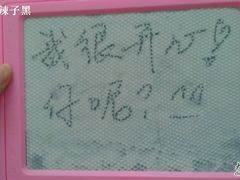 辣子黑
我很开心!
你呢?